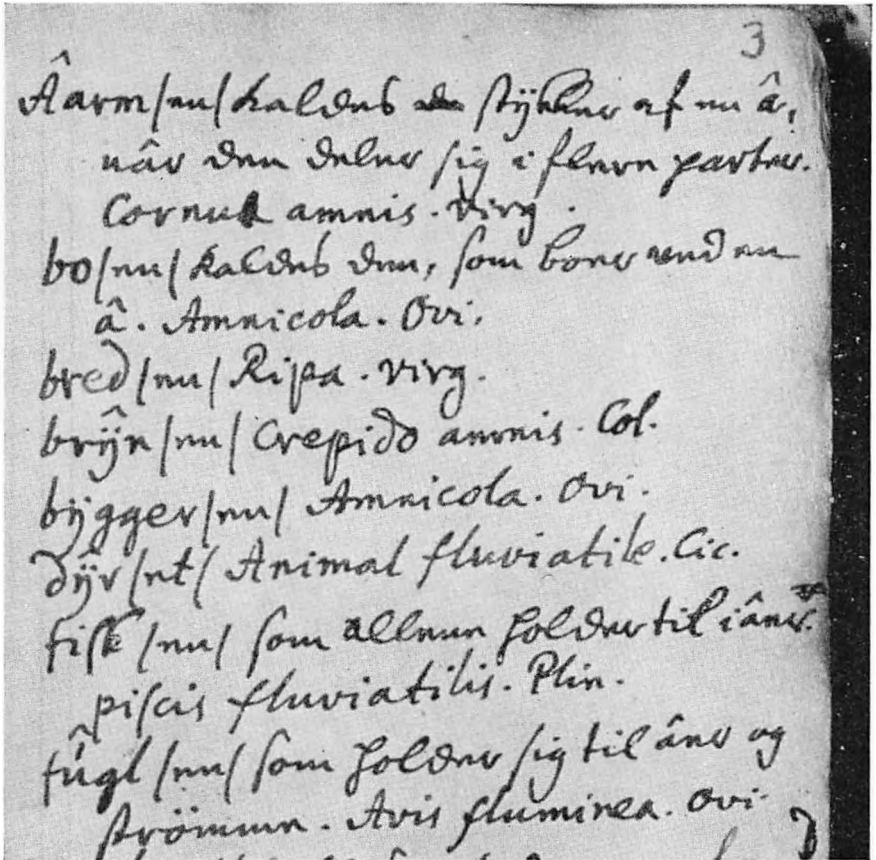 3
Âarm/en/ kaldes stÿkker af en â,
nâr den deler sig i flere parter.
Cornu amnis. Virg.
bo/en/ kaldes den, som boer ved en
â. Amnicola. Ovi.
bred/en/ Ripa. Virg.
brŷn/en/ Crepido amnis. Col.
bÿgger/en/ Amnicola. Ovi.
dŷr/et/ Animal fluviatile. Cic.
fisk/en/ som alleene holder til i âner.
piscis fluviatilis. Plin.
fûgl/en/ som holder sig til âner og
strömmen. Avis fluminea. Ovi